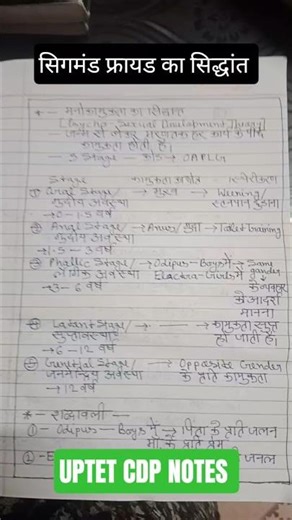 सिगमंड फ्रायड का सिद्धांत
* — मनोकामुकता का सिद्धांत
(Psycho-Sexual Development Theory)
जन्म से लेकर मरण तक हर कार्य के पीछे
कामुकता होती है।
— 5 Stage — कोड → OAPLG
Stage कामुकता स्त्रोत
① Oral Stage/ → मुख → Weening/
मुखीय अवस्था स्तनपान छुड़ाना
→ 0-1.5 वर्ष
② Anal Stage/ → Anus/गुदा → Toilet training
गुदीय अवस्था
→ 1.5 - 3 वर्ष
③ Phallic Stage/ → Odipus-Boys में → Same
लैंगिक अवस्था Electra-Girls में gender
→ 3-6 वर्ष के व्यवहार
को आदर्श
मानना
④ Latent Stage/ → — → कामुकता सुप्त
सुप्तावस्था हो जाती है।
→ 6-12 वर्ष
⑤ Genital Stage/ → Opposite Gender
जननेन्द्रिय अवस्था के प्रति कामुकता
→ 12 वर्ष
* — शब्दावली —
① - Odipus - Boys में → पिता के प्रति जलन
माँ के प्रति प्रेम
② - E जलन
UPTET CDP NOTES